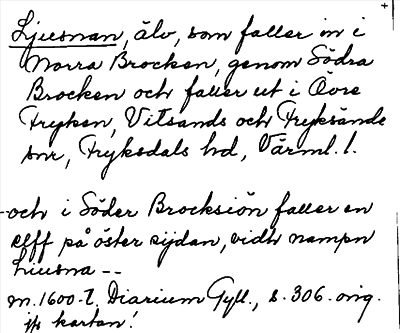 Ljusnan, älv, som faller in i
Norra Brocken, genom Södra
Brocken och faller ut i Övre
Fryken, Vitsands och Fryksände
snr, Fryksdals hd, Värml. l.
-och i Söder Brocksiön faller en
elff på öster sijdan, vidh nampn
Liusna --
m. 1600-t. Diarium Gyll., s. 306. orig.
jfr kartan!